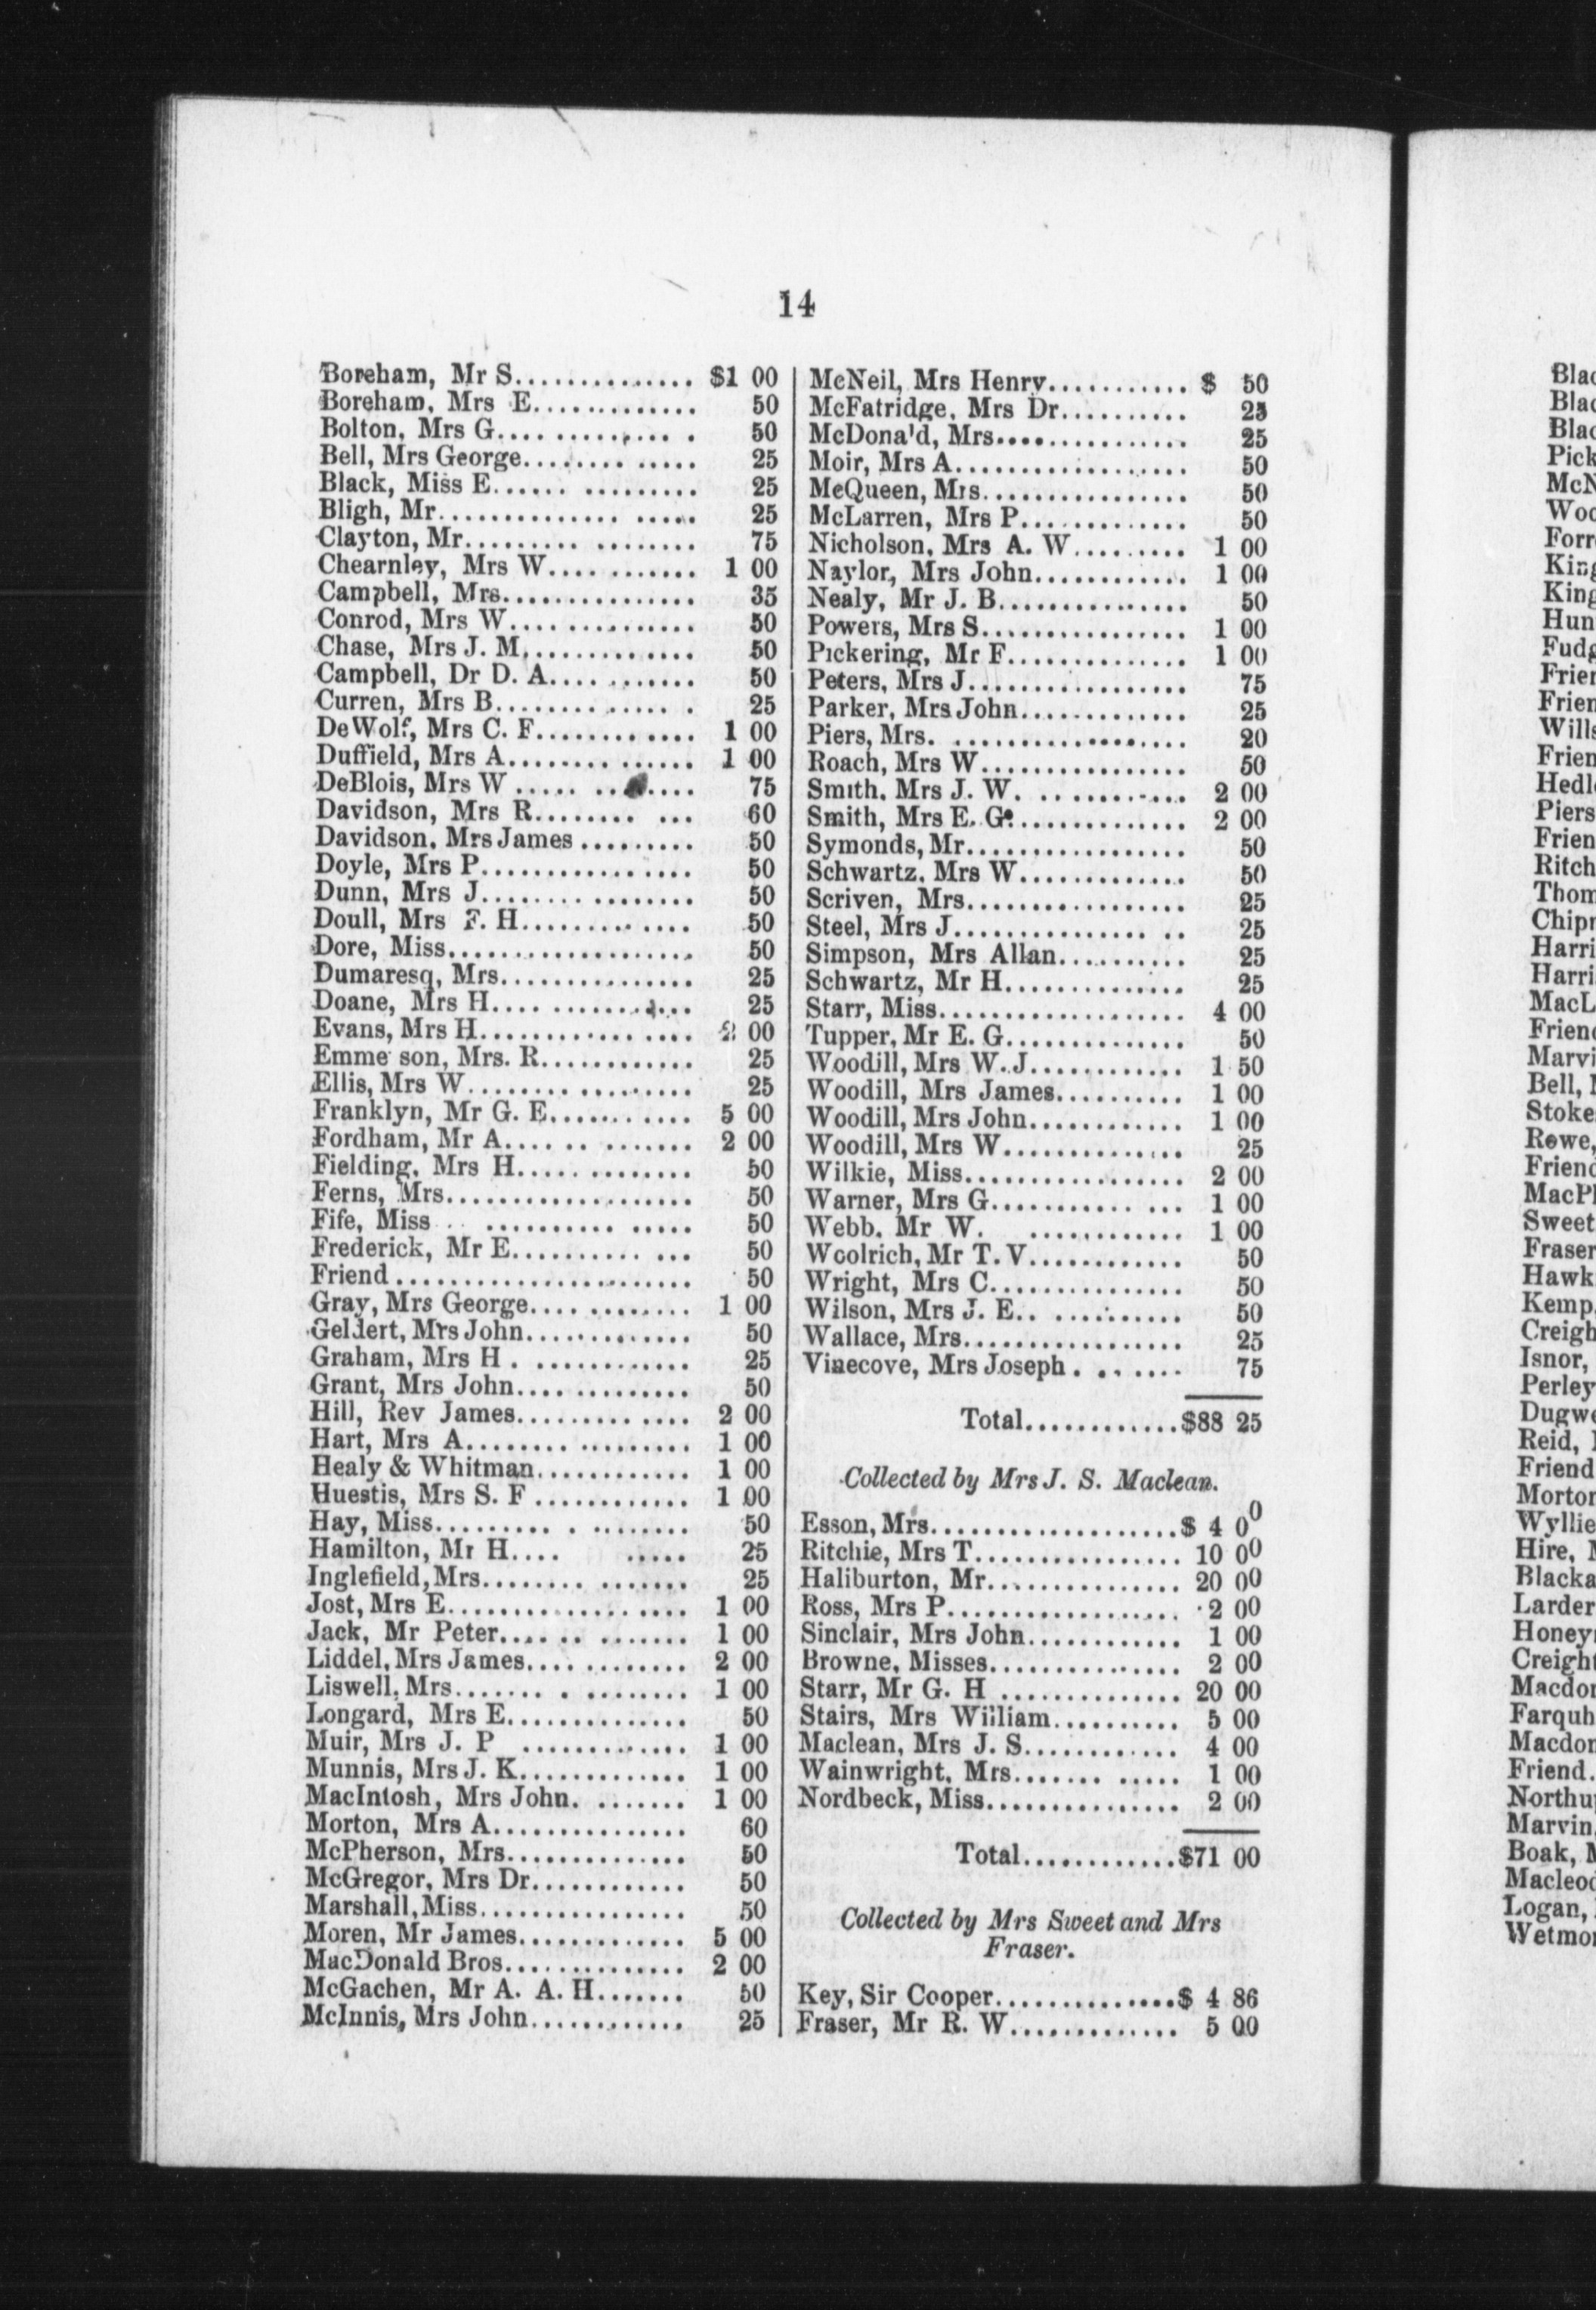 14
Boreham, Mr S............... $1 00
Boreham, Mrs E............. 50
Bolton, Mrs G.... ......... . 50
Bell, Mrs George........ ..... 25
Black, Miss E...... ......... 25
Bligh, Mr.............. ..... 25
Clayton, Mr......... ........ 75
Chearnley, Mrs W.... ....... 1 00
Campbell, Mrs............... 35
Conrod, Mrs W.... .......... 50
Chase, Mrs J. M............. 50
Campbell, Dr D. A........... 50
Curren, Mrs B............. . 25
DeWolf, Mrs C. F............ 1 00
Duffield, Mrs A........ ...... 1 00
DeBlois, Mrs W ..... ........ 75
Davidson, Mrs R........ ... 60
Davidson, Mrs James ......... 50
Doyle, Mrs P................ 50
Dunn, Mrs J........ ........ 50
Doull, Mrs F. H......... .... 50
Dore, Miss................... 50
Dumaresq, Mrs............... 25
Doane, Mrs H.... ........... 25
Evans, Mrs H............. .... 2 00
Emme son, Mrs. R............ 25
Ellis, Mrs W......... ........ 25
Franklyn, Mr G. E........... 5 00
Fordham, Mr A.... .. ....... 2 00
Fielding, Mrs H..... ........ 50
Ferns, Mrs................... 50
Fife, Miss .. .......... ..... 50
Frederick, Mr E.......... ... 50
Friend ....................... 50
Gray, Mrs George.... ........ 1 00
Geldert, Mrs John............. 50
Graham, Mrs H . ............ 25
Grant, Mrs John.... ......... 50
Hill, Rev James.......... .... 2 00
Hart, Mrs A........ ......... 1 00
Healy & Whitman............ 1 00
Huestis, Mrs S. F ............ 1 00
Hay, Miss......... . ........ 50
Hamilton, Mr H.... ..... 25
Inglefield, Mrs........ ....... 25
Jost, Mrs E.............. .... 1 00
Jack, Mr Peter.... .. ....... 1 00
Liddel, Mrs James.... ........ 2 00
Liswell, Mrs....... . ........ 1 00
Longard, Mrs E.............. 50
Muir, Mrs J. P ............. 1 00
Munnis, Mrs J. K............. 1 00
MacIntosh, Mrs John. ....... 1 00
Morton, Mrs A............... 60
McPherson, Mrs.............. 50
McGregor, Mrs Dr............ 50
Marshall, Miss................ 50
Moren, Mr James............. 5 00
MacDonald Bros.............. 2 00
McGachen, Mr A. A. H....... 50
McInnis, Mrs John............ 25
McNeil, Mrs Henry........... $ 50
McFatridge, Mrs Dr.......... 25
McDona'd, Mrs............... 25
Moir, Mrs A.................. 50
McQueen, Mrs................ 50
McLarren, Mrs P............. 50
Nicholson, Mrs A. W......... 1 00
Naylor, Mrs John............ 1 00
Nealy, Mr J. B............... 50
Powers, Mrs S................ 1 00
Pickering, Mr F.............. 1 00
Peters, Mrs J................. 75
Parker, Mrs John............. 25
Piers, Mrs. .................. 20
Roach, Mrs W................ 50
Smith, Mrs J. W. .. ......... 2 00
Smith, Mrs E. G.............. 2 00
Symonds, Mr................. 50
Schwartz, Mrs W............. 50
Scriven, Mrs................. 25
Steel, Mrs J............... .. 25
Simpson, Mrs Allan.......... 25
Schwartz, Mr H.............. 25
Starr, Miss................... 4 00
Tupper, Mr E. G.............. 50
Woodill, Mrs W. J............ 1 50
Woodill, Mrs James.......... 1 00
Woodill, Mrs John............ 1 00
Woodill, Mrs W.............. 25
Wilkie, Miss................. 2 00
Warner, Mrs G........... ... 1 00
Webb, Mr W. ............ 1 00
Woolrich, Mr T. V............ 50
Wright, Mrs C............... 50
Wilson, Mrs J. E.. .......... 50
Wallace, Mrs................. 25
Vinecove, Mrs Joseph . ...... 75
Total............$88 25
Collected by Mrs J. S. Maclean.
Esson, Mrs...................$ 4 00
Ritchie, Mrs T................ 10 00
Haliburton, Mr............... 20 00
Ross, Mrs P.................. 2 00
Sinclair, Mrs John............ 1 00
Browne, Misses............... 2 00
Starr, Mr G. H .............. 20 00
Stairs, Mrs William.......... 5 00
Maclean, Mrs J. S............ 4 00
Wainwright, Mrs....... ..... 1 00
Nordbeck, Miss............... 2 00
Total............$71 00
Collected by Mrs Sweet and Mrs
Fraser.
Key, Sir Cooper..............$ 4 86
Fraser, Mr R. W............. 5 00
Friend
Friend
Friend.